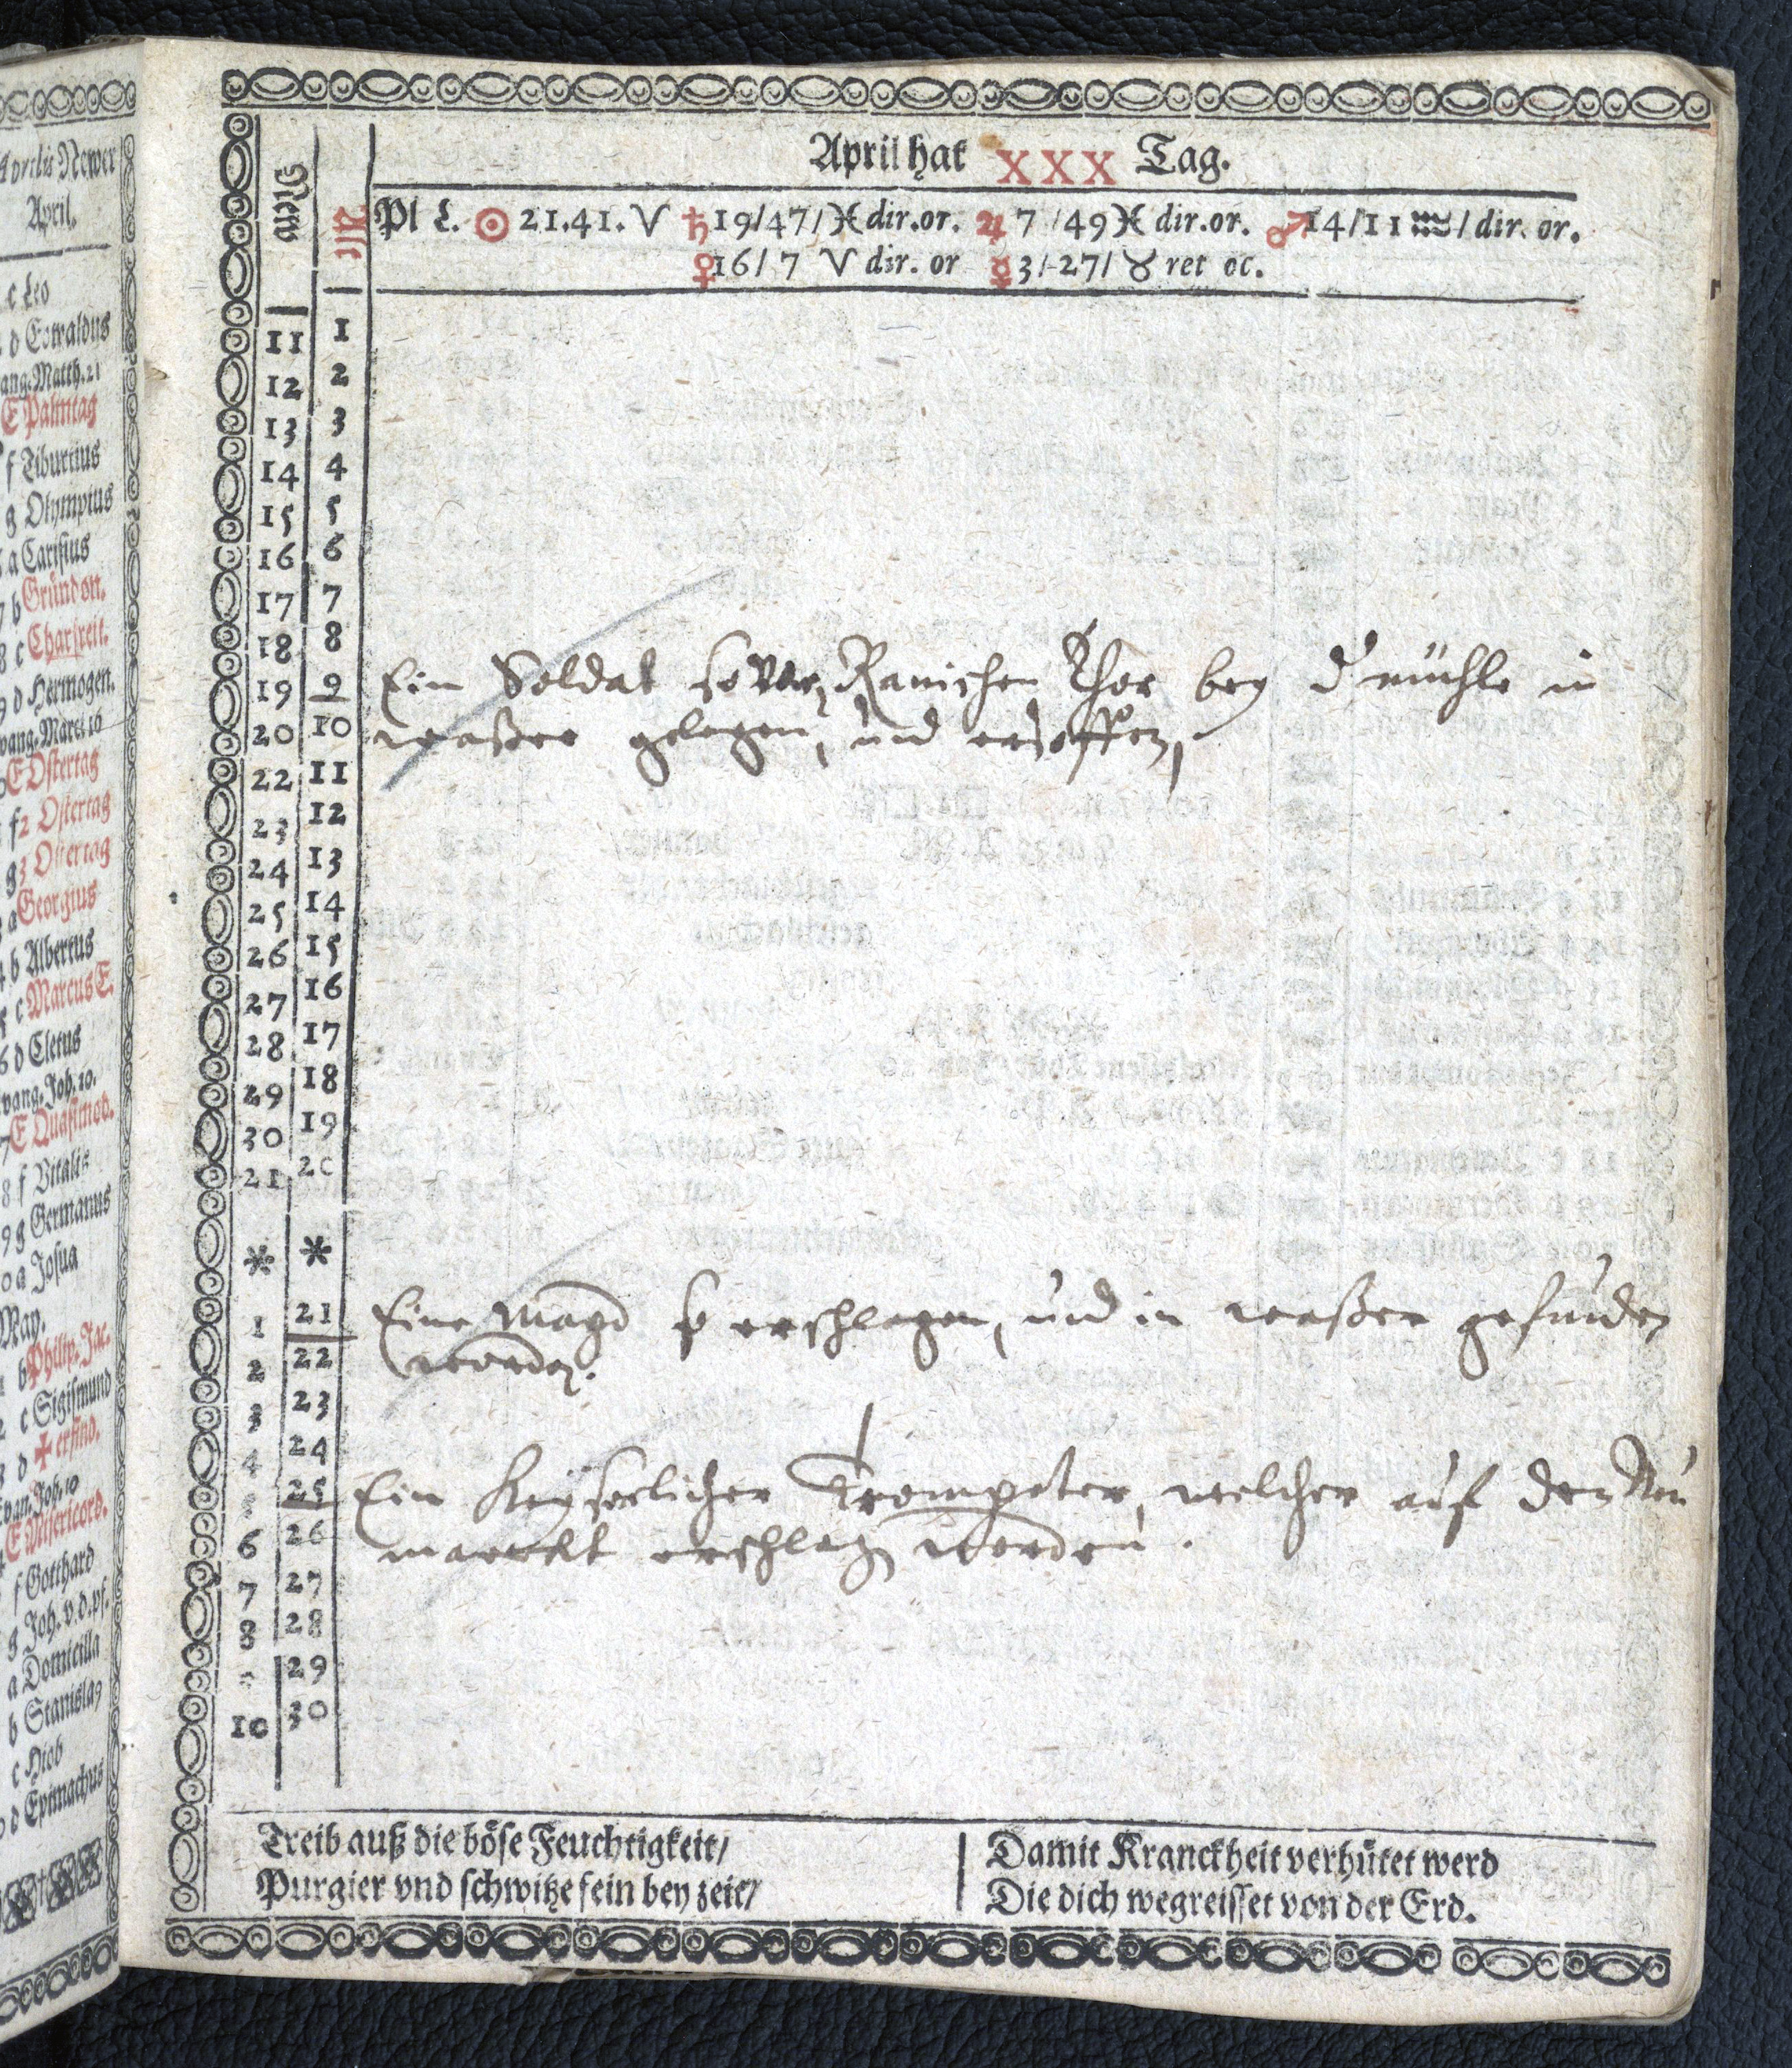 Aprilis Newer
April.
c Leo
d Eowaldus
ang. Matth. 21
E Palmtag
f Tiburtius
g Olympius
a Carisius
b Gründon.
8 c Charfreit.
9 d Hermogen.
vang. Marci 16
E Ostertag
f 2 Ostertag
g 3 Ostertag
a Georgius
b Albertus
c Marcus E.
6 d Cletus
vang. Joh. 10.
7 E Quasimod.
8 f Vitalis
9 g Germanus
0 a Josua
May.
b Philip. Jac.
2 c Sigismund
3 d ✚ erfind.
Evan. Joh. 10
E Misericord.
f Gotthard
g Joh. v. d. pf.
a Domicilla
b Stanislag
c Hiob
d Epimachus
April hat XXX Tag.
New Alt
Pl L. ☉ 21.41. ♈ ♄ 19/47/ ♓ dir. or. ♃ 7 /49 ♓ dir. or. ♂ 14/11 ♒ / dir. or.
♀ 16/ 7 ♈ dir. or ☿ 3/-27/ ♉ ret oc.
11 1
12 2
13 3
14 4
15 5
16 6
17 7
18 8
19 9 Ein Soldat so Vor Ranischen Thor bey d mühle in
20 10 waßer gelegen, und ersoffen,
22 11
23 12
24 13
25 14
26 15
27 16
28 17
29 18
30 19
21 20
* *
1 21 Eine Magd so erschlagen, und in waßer gefunden
2 22 worden.
3 23
4 24
5 25 Ein Keyserlicher Trompeter, welcher auf den Neu
6 26 marckt erschlagen worden.
7 27
8 28
29
10 30
Treib auß die böse Feuchtigkeit/
Purgier vnd schwitze fein bey zeit/
Damit Kranckheit verhütet werd
Die dich wegreisset von der Erd.